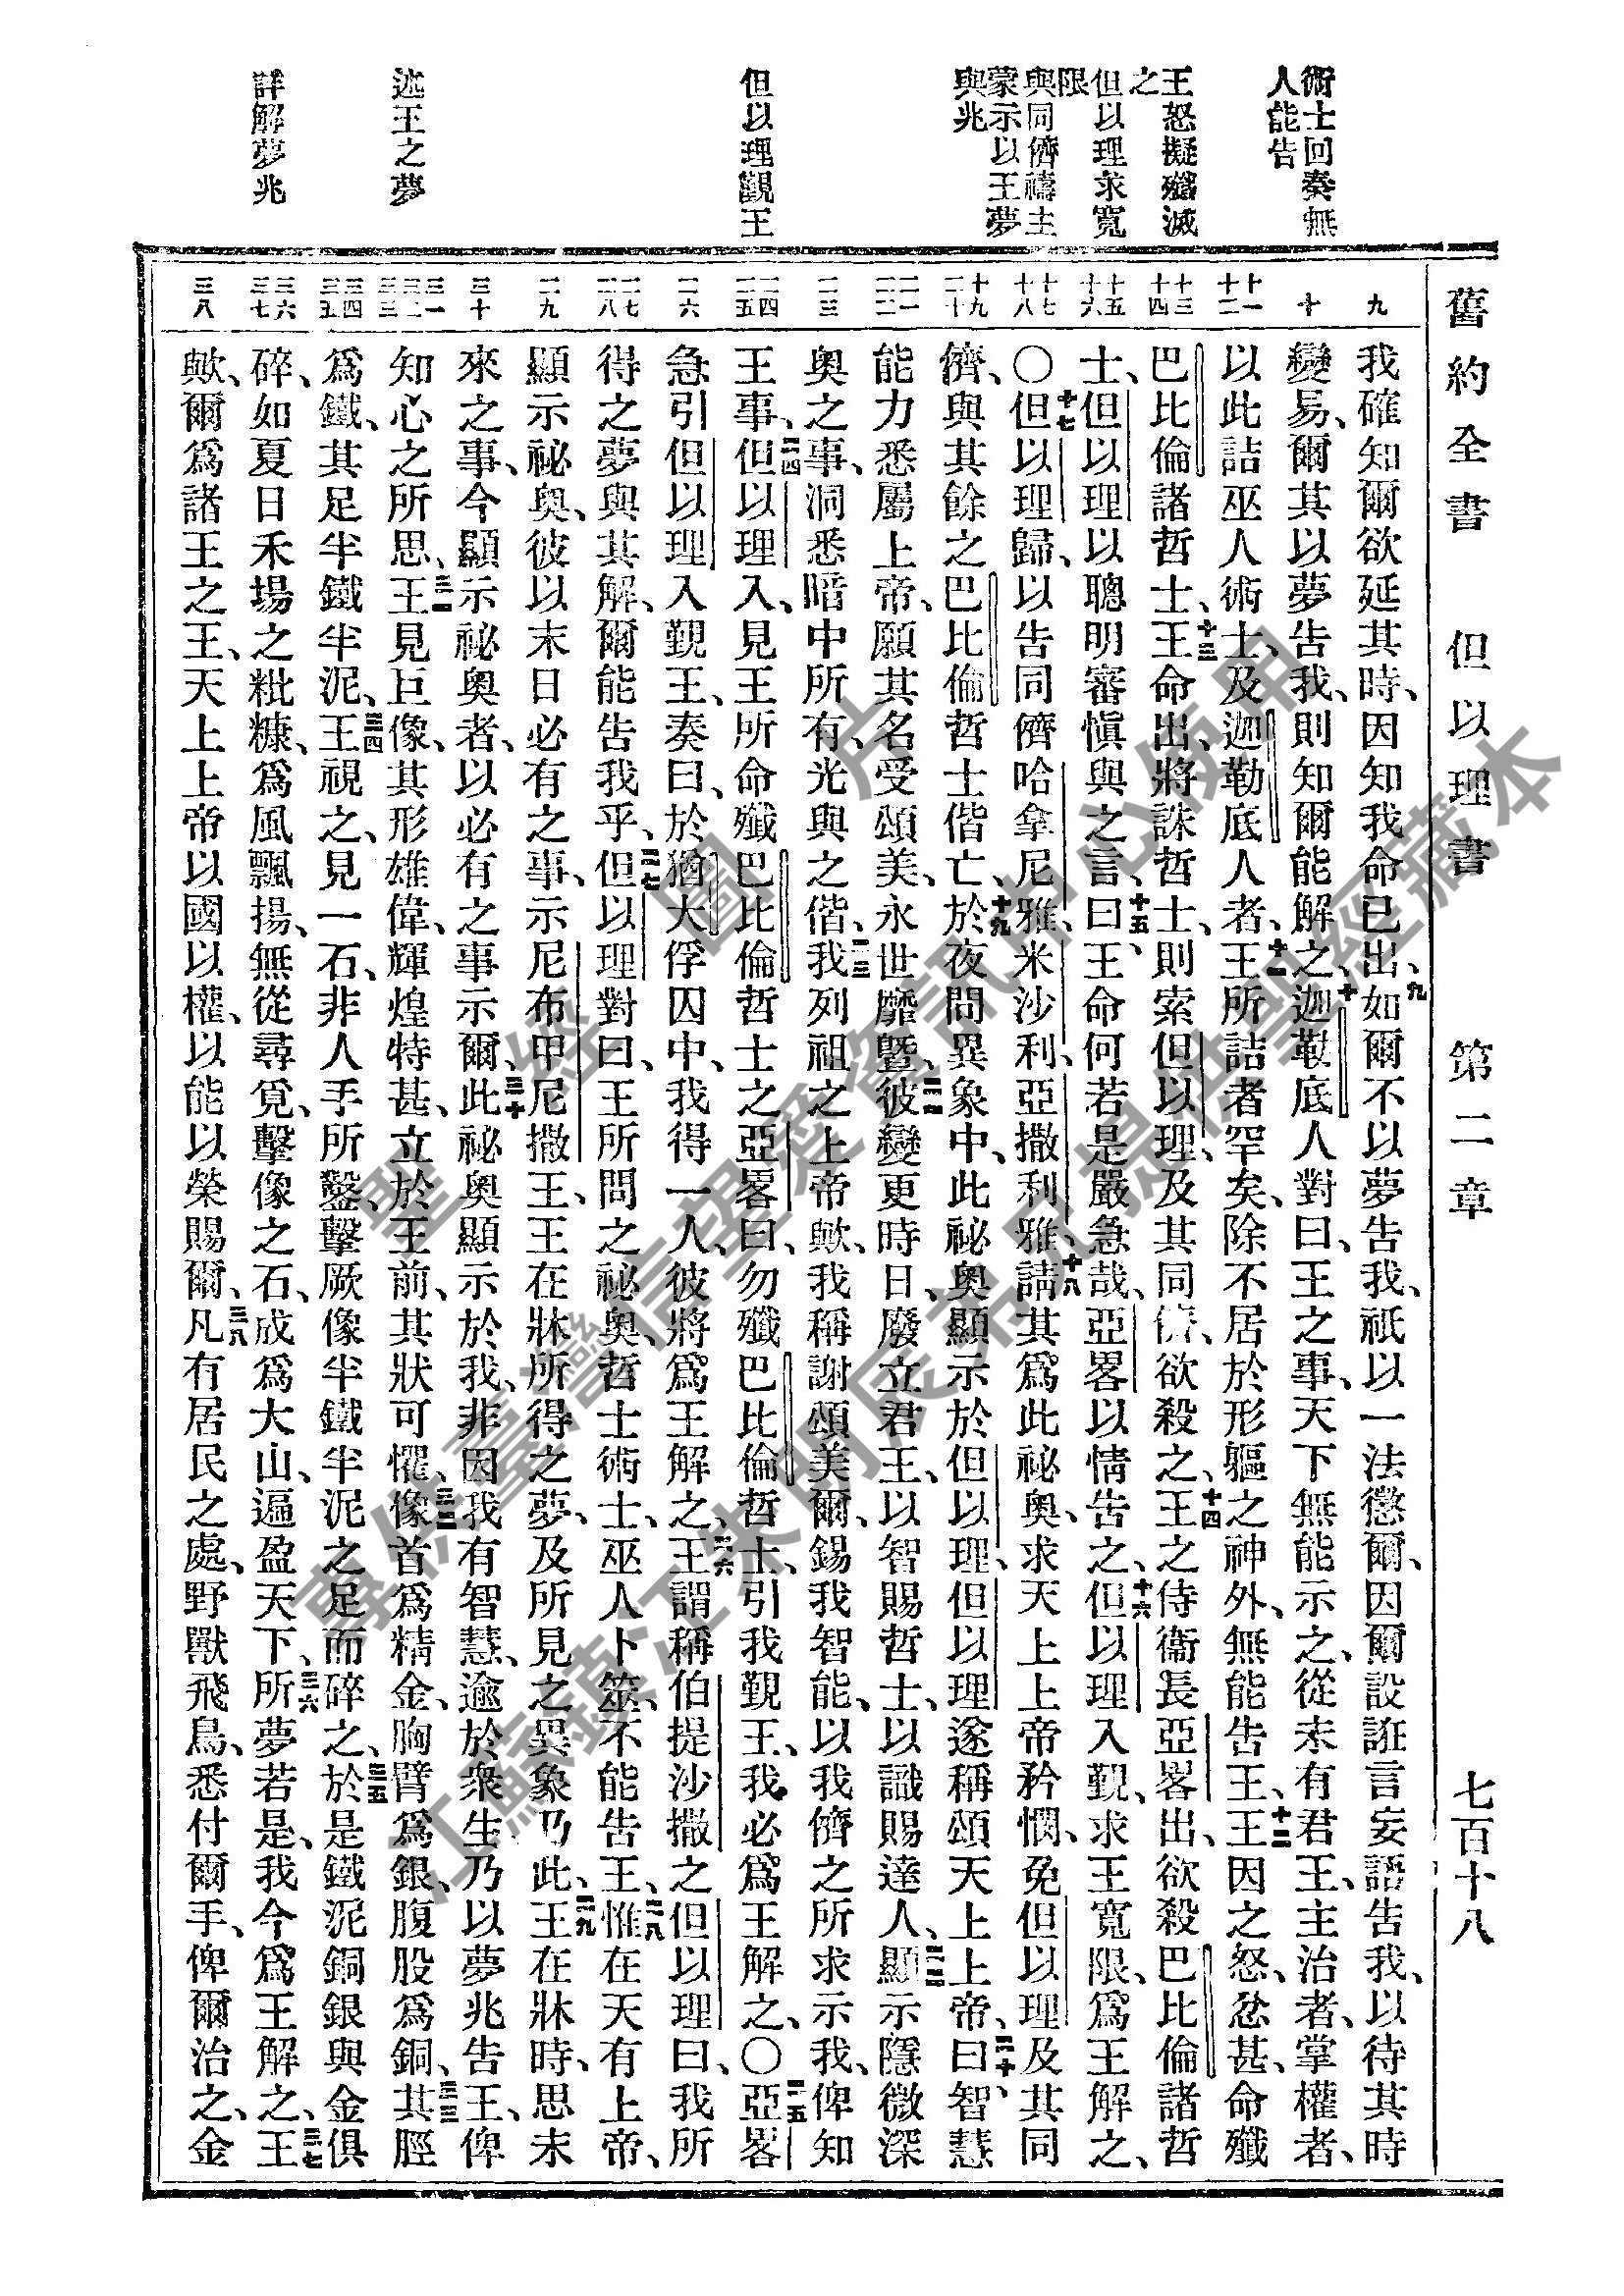 舊約全書 但以理書 第二章 七百十八
術士回奏無
人能告
王怒擬殲滅
之
但以理求寬
限
與同儕禱主
蒙示以王夢
與兆
但以理覲王
述王之夢
詳解夢兆
九
我確知爾欲延其時、因知我命已出、九如爾不以夢告我、祇以一法懲爾、因爾設誑言妄語告我、以待其時
十
變易、爾其以夢告我、則知爾能解之、十迦勒底人對曰、王之事、天下無能示之、從未有君王、主治者、掌權者、
十一 十二
以此詰巫人術士、及迦勒底人者、十一王所詰者罕矣、除不居於形軀之神外、無能告王、十二王因之怒、忿甚、命殲
十三 十四
巴比倫諸哲士、十三王命出、將誅哲士、則索但以理、及其同儕、欲殺之、十四王之侍衞長亞畧出、欲殺巴比倫諸哲
十五 十六
士、但以理以聰明審愼與之言、十五曰、王命何若是嚴急哉、亞畧以情告之、十六但以理入覲、求王寬限、爲王解之、
十七 十八
〇十七但以理歸、以告同儕哈拿尼雅、米沙利、亞撒利雅、十八請其爲此祕奧、求天上上帝矜憫、免但以理及其同
十九 二十
儕、與其餘之巴比倫哲士偕亡、十九於夜間異象中、此祕奧顯示於但以理、但以理遂稱頌天上上帝、二十曰、智慧
二一 二二
能力悉屬上帝、願其名受頌美、永世靡曁、二一彼變更時日、廢立君王、以智賜哲士、以識賜達人、二二顯示隱微深
二三
奧之事、洞悉暗中所有、光與之偕、二三我列祖之上帝歟、我稱謝頌美爾、錫我智能、以我儕之所求示我、俾知
二四 二五
王事、二四但以理入、見王所命殲巴比倫哲士之亞畧曰、勿殲巴比倫哲士、引我覲王、我必爲王解之、〇二五亞畧
二六
急引但以理入覲王、奏曰、於猶大俘囚中、我得一人、彼將爲王解之、二六王謂稱伯提沙撒之但以理曰、我所
二七 二八
得之夢與其解、爾能告我乎、二七但以理對曰、王所問之祕奧、哲士術士、巫人卜筮、不能告王、二八惟在天有上帝、
二九
顯示祕奧、彼以末日必有之事、示尼布甲尼撒王、王在牀所得之夢、及所見之異象乃此、二九王在牀時、思未
三十
來之事、今顯示祕奧者、以必有之事示爾、三十此祕奧顯示於我、非因我有智慧、逾於衆生、乃以夢兆告王、俾
三一 三二 三三
知心之所思、三一王見巨像、其形雄偉、輝煌特甚、立於王前、其狀可懼、三二像首爲精金、胸臂爲銀、腹股爲銅、三三其脛
三四 三五
爲鐵、其足半鐵半泥、三四王視之、見一石、非人手所鑿、擊厥像半鐵半泥之足而碎之、三五於是鐵泥銅銀與金俱
三六 三七
碎、如夏日禾場之粃糠、爲風飄揚、無從尋覓、擊像之石、成爲大山、遍盈天下、三六所夢若是、我今爲王解之、三七王
三八
歟、爾爲諸王之王、天上上帝以國以權、以能以榮賜爾、三八凡有居民之處、野獸飛鳥、悉付爾手、俾爾治之、金
聖經圖片
專供臺灣信望愛資訊中心使用
江蘇鎮江朱明辰弟兄提供聖經藏本